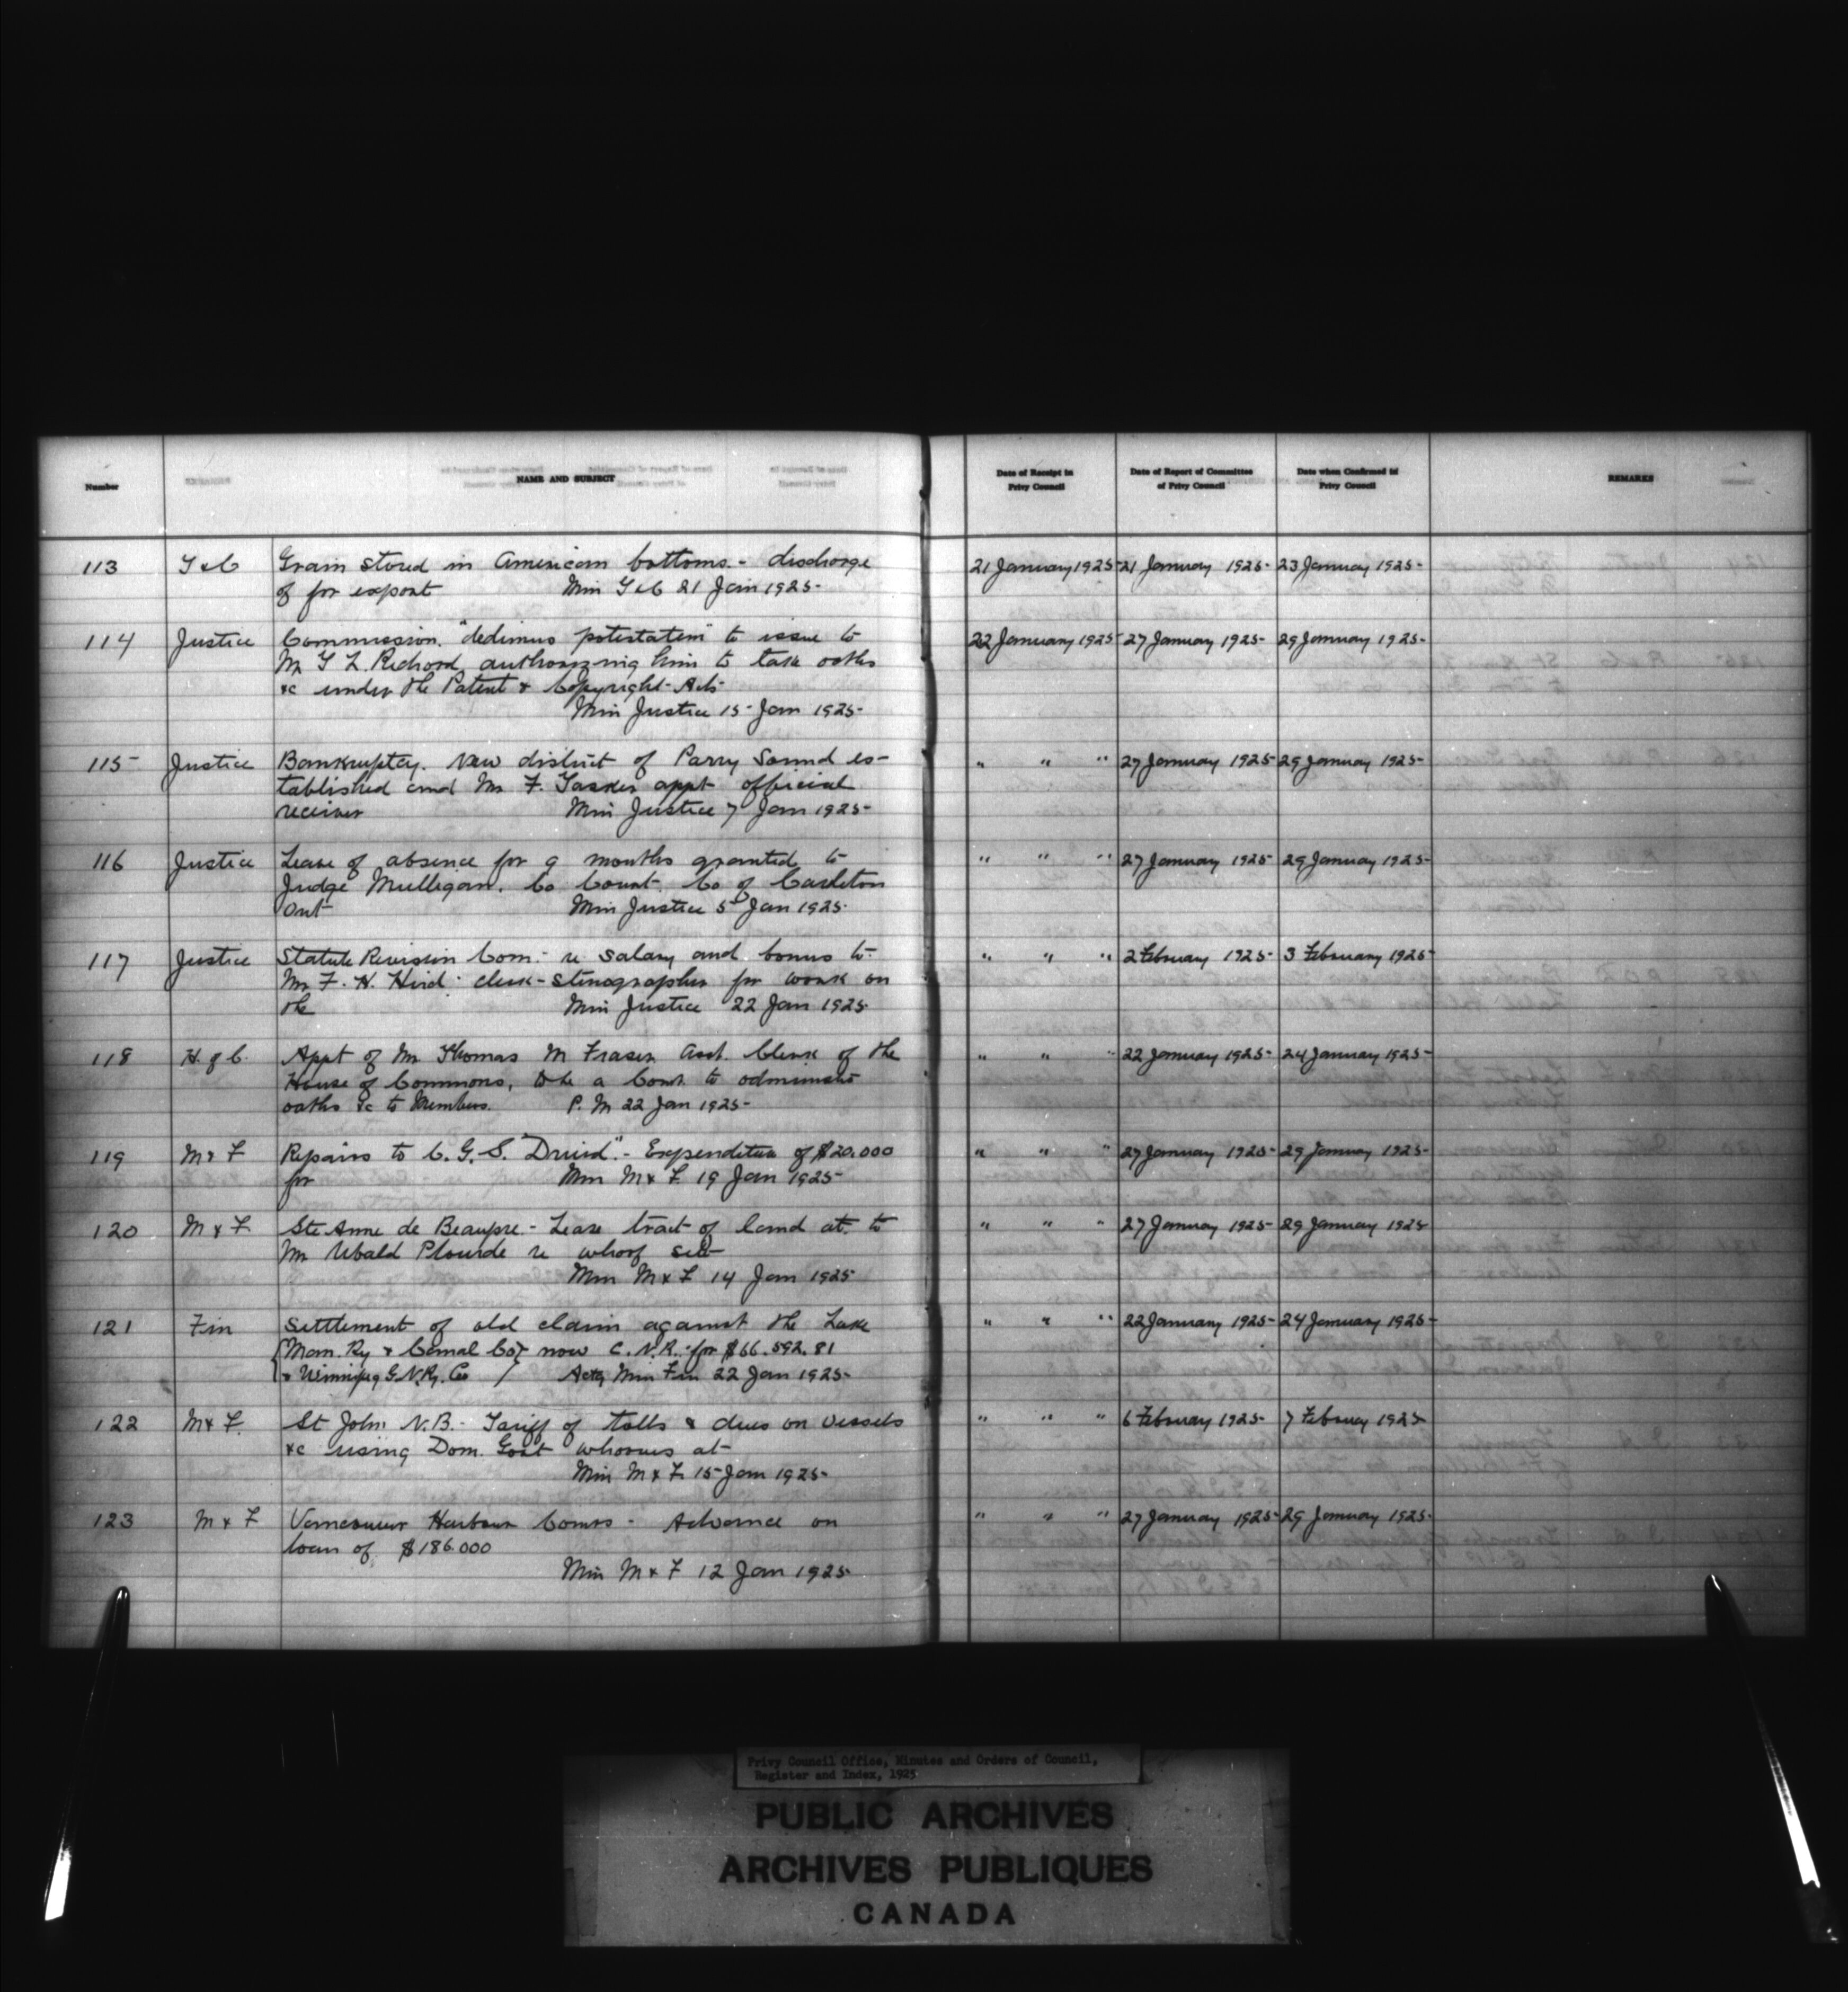 Number
NAME AND SUBJECT
Date of Receipt in Privy Council
Date of Report of Committee of Privy Council
Date when Confirmed in Privy Council
REMARKS
113 T & C Grain stored in American bottoms - discharge 21 January 1925 21 January 1925 23 January 1925
of for export Min T & C 21 Jan 1925
114 Justice Commission "dedimus potestatem" to issue to 22 January 1925 27 January 1925 29 January 1925
Mr T L Richard authorizing him to take oaths
&c under the Patent & Copyright Acts
Min Justice 15 Jan 1925
115 Justice Bankruptcy. New district of Parry Sound es- " " " 27 January 1925 29 January 1925
tablished and Mr F. Tasker appt official
receiver Min Justice 7 Jan 1925
116 Justice Leave of absence for 9 months granted to " " " 27 January 1925 29 January 1925
Judge Mulligan. Co Court. Co of Carleton
Ont Min Justice 5 Jan 1925
117 Justice Statute Revision Com. - re salary and bonus to " " " 2 February 1925 3 February 1925
Mr F. H. Hird - clerk-stenographer for work on
the Min Justice 22 Jan 1925
118 H. of C. Appt of Mr Thomas M Fraser Asst. Clerk of the " " " 22 January 1925 24 January 1925
House of Commons, to be a Comr. to administer
oaths &c to Members. P. M 22 Jan 1925
119 M & F Repairs to C. G. S. "Druid" - Expenditure of $20.000 " " " 27 January 1925 29 January 1925
for Min M & F. 19 Jan 1925
120 M & F. Ste Anne de Beaupre - Lease tract of land at to " " " 27 January 1925 29 January 1925
Mr Ubald Plourde re wharf site
Min M & F 14 Jan 1925
121 Fin Settlement of old claim against the Lake " " " 22 January 1925 24 January 1925
Man. Ry & Canal Co now C. N. R. for $66.592.81
& Winnipeg G. N. Ry. Co Actg Min Fin 22 Jan 1925
122 M & F. St John N.B. - Tariff of tolls & dues on vessels " " " 6 February 1925 7 February 1925
&c using Dom. Govt wharves at
Min M & F. 15 Jan 1925
123 M & F Vancouver Harbour Comrs - Advance on " " " 27 January 1925 29 January 1925
loan of $186.000
Min M & F 12 Jan 1925
Privy Council Office, Minutes and Orders of Council,
Register and Index, 1925
PUBLIC ARCHIVES
ARCHIVES PUBLIQUES
CANADA